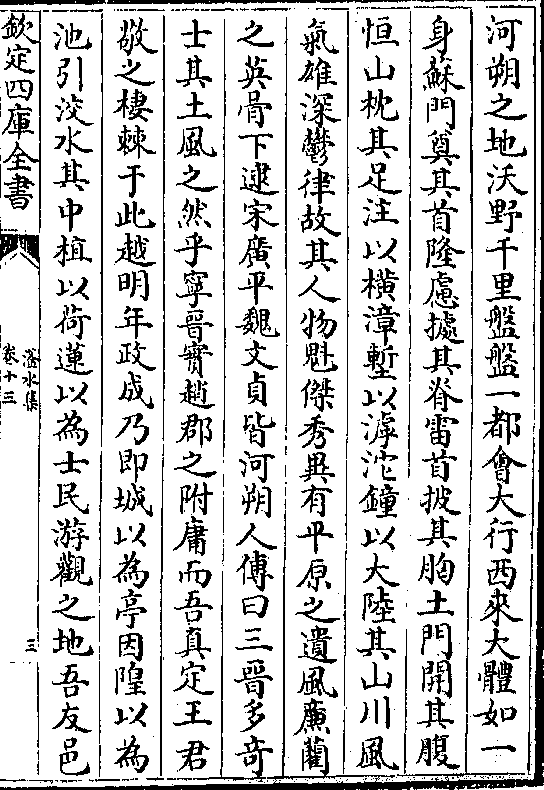 河朔之地沃野千里盤盤一都會大行西來大體如一
身蘇門奠其首隆慮據其脊雷首披其胸土門開其腹
恒山枕其足注以橫漳塹以滹沱鐘以大陸其山川風
氣雄深鬱律故其人物魁傑秀異有平原之遺風廉藺
之英骨下逮宋廣平魏文貞皆河朔人傳曰三晉多奇
士其土風之然乎寧晉實趙郡之附庸而吾真定王君
敬之棲棘于此越明年政成乃即城以為亭因隍以為
池引洨水其中植以荷蓮以為士民游觀之地吾友邑
欽定四庫全書
滏水集
卷十三
三